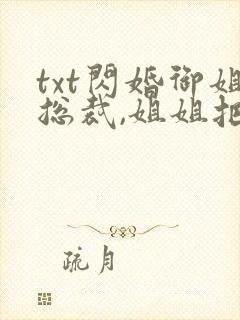 txt閃婚御姐
总裁,姐姐把
疏月